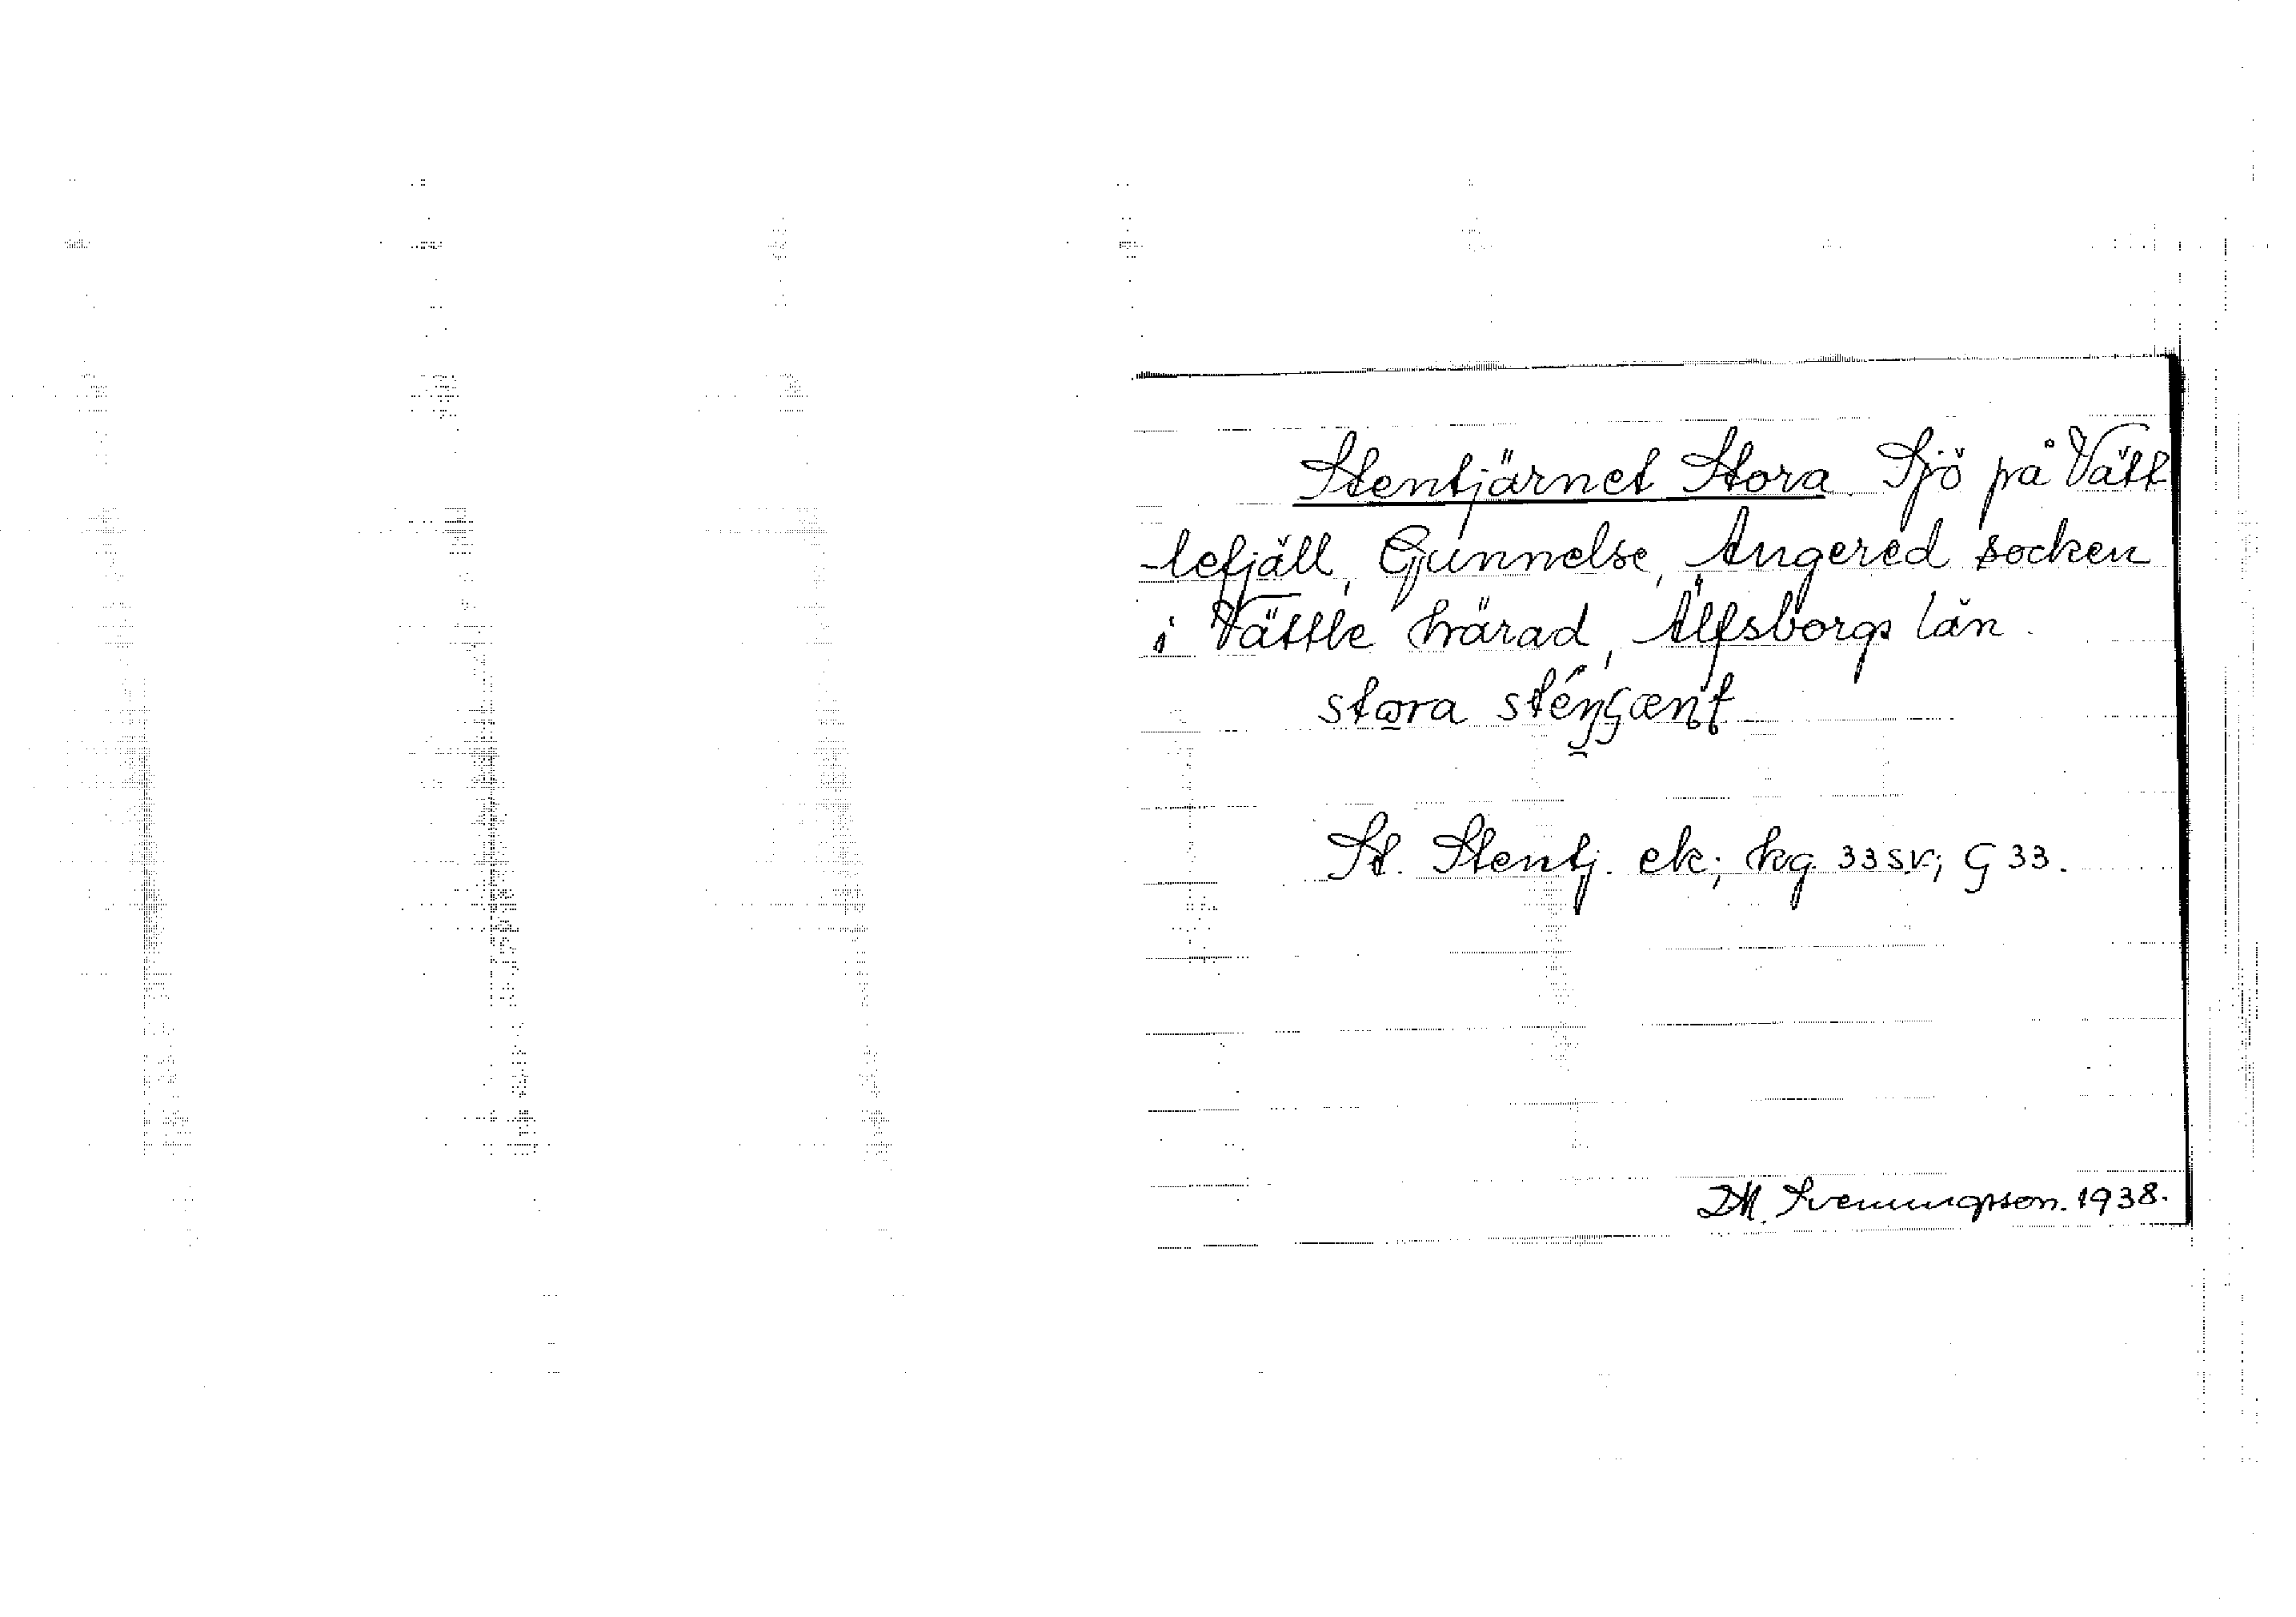 Stentjärnet Stora. Sjö på Vätt
lefjäll, Gunnelse, Angered socken
i Vättle härad, Älfsborgs län.
stora
St. Stentj. ek; hkg. 33 sv; G 33.
D.M. Sveningsson. 1938.